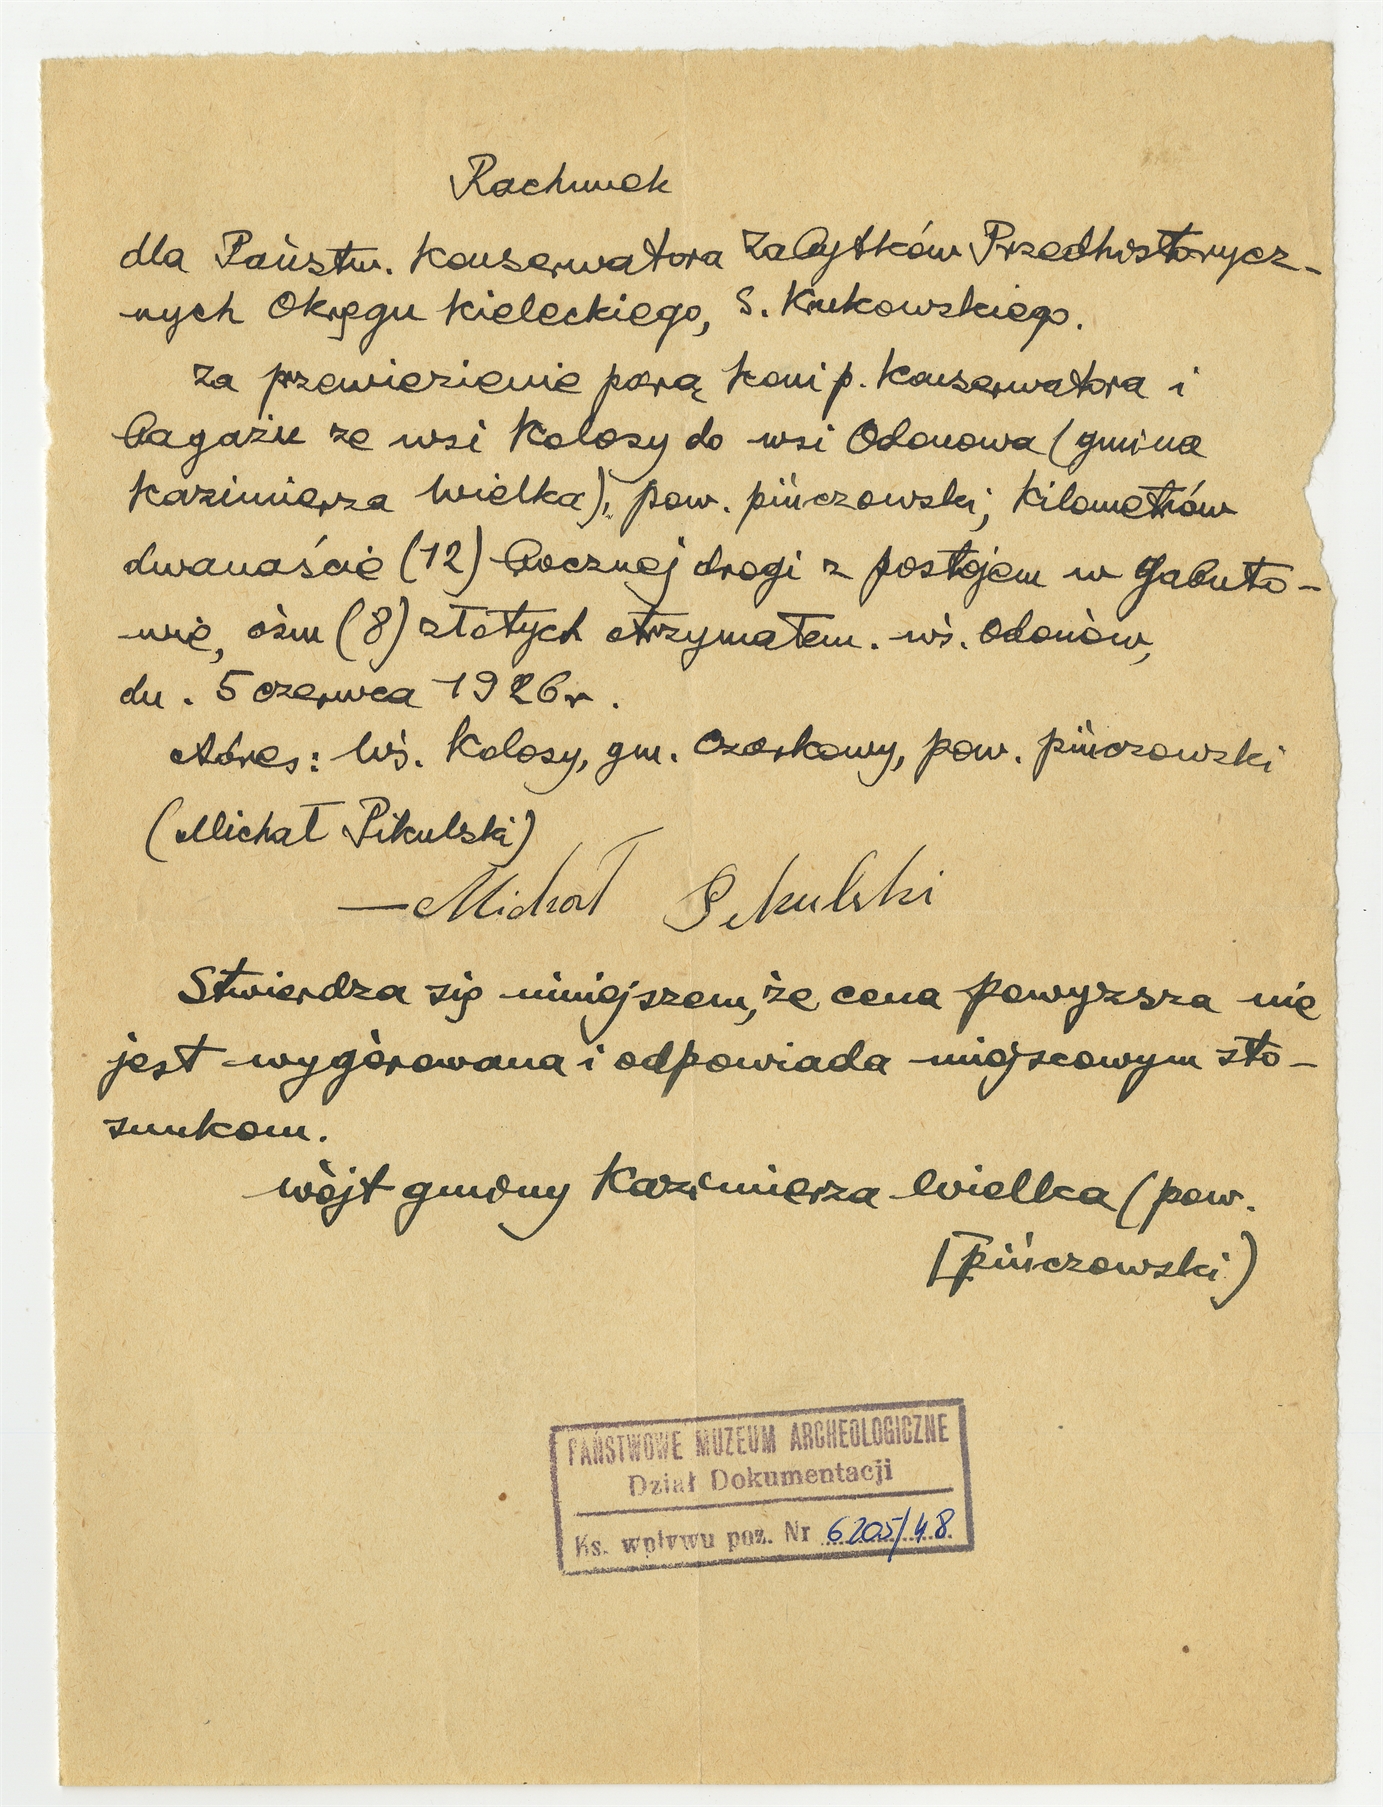 Rachunek
dla Państw. Konserwatora Zabytków Przedhistorycz-
nych Okręgu Kieleckiego, S. Krukowskiego.
Za przewiezienie parą koni p. Konserwatora i
bagażu ze wsi Kolosy do wsi Odonowa (gmina
Kazimierza Wielka), pow. pińczowski; kilometrów
dwanaście (12) bocznej drogi z postojem w Gabuto-
wie, ośm (8) złotych otrzymałem. wś. Odonów,
dn. 5 czerwca 1926 r.
Adres: Wś. Kolosy, gm. Czarkowy, pow. pińczowski
(Michał Pikulski)
— Michał Pikulski
Stwierdza się niniejszem, że cena powyższa nie
jest wygórowana i odpowiada miejscowym sto-
sunkom.
wójt gminy Kazimierza Wielka (pow.
pińczowski)
PAŃSTWOWE MUZEUM ARCHEOLOGICZNE
Dział Dokumentacji
Ks. wpływu poz. Nr 6205/48